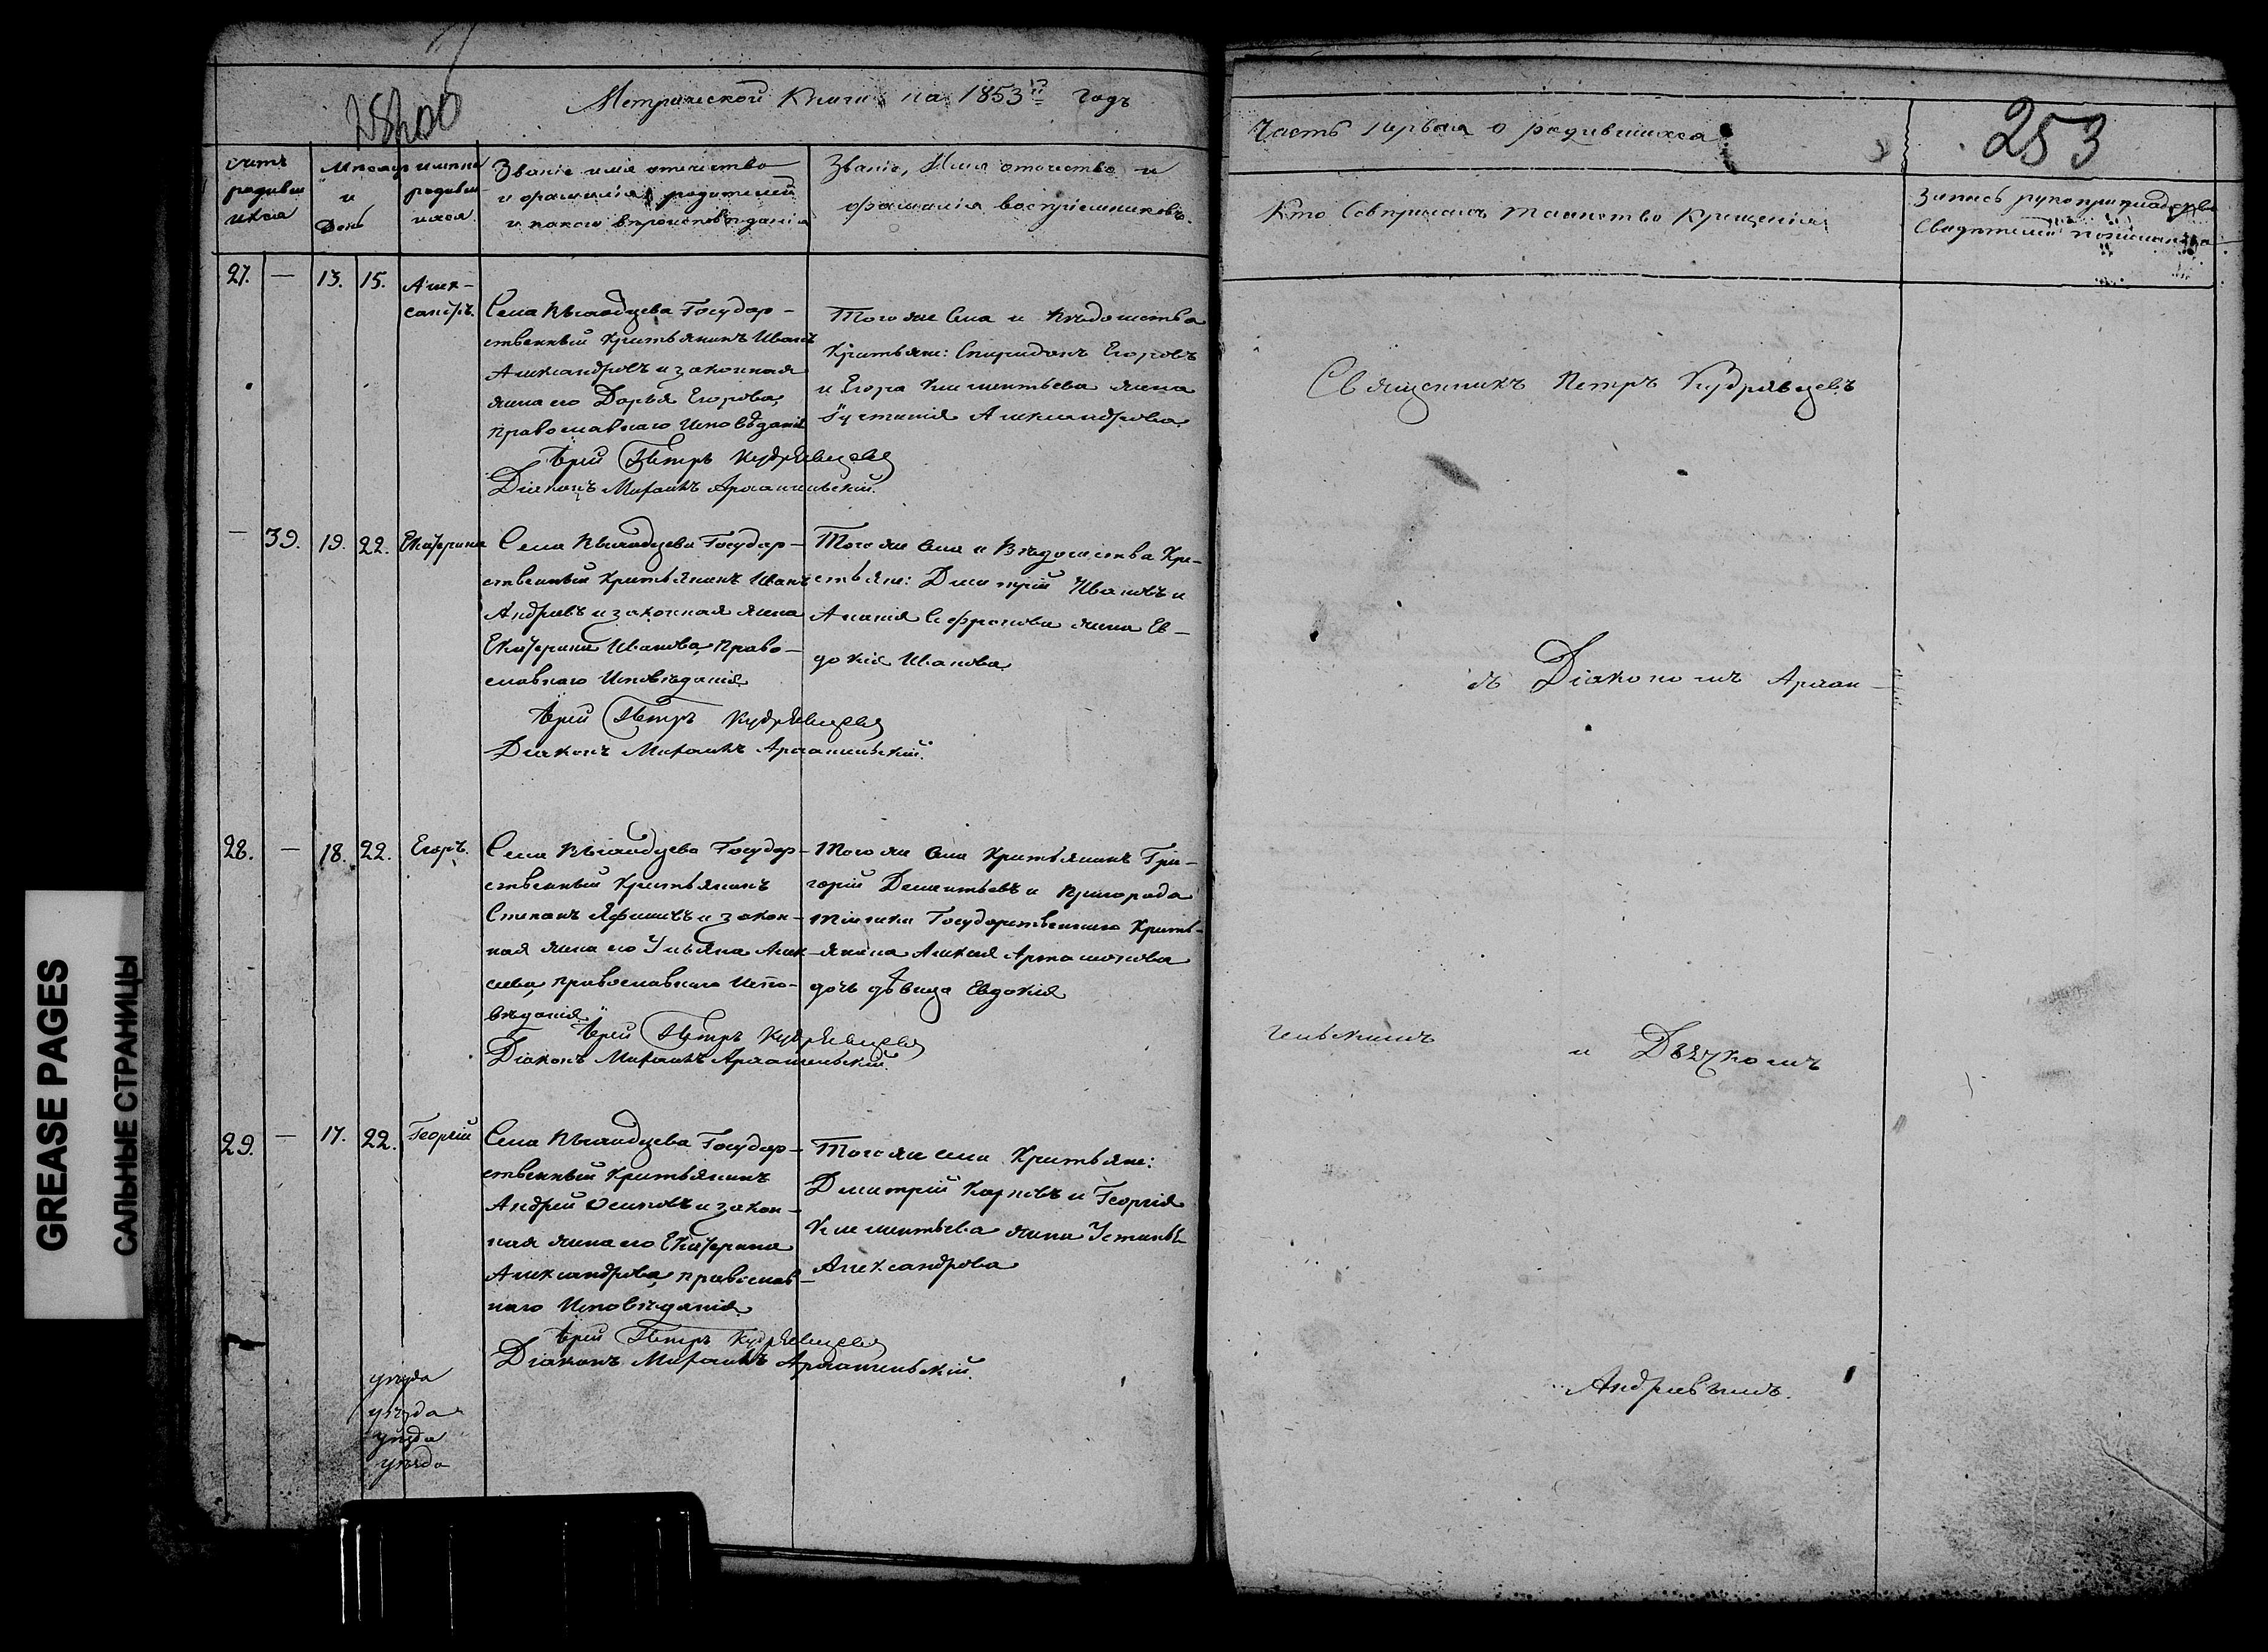 Метрической Книги на 1853й годъ
Часть первая о родившихся
253
счетъ родившихся
Мѣсяцъ и День
имена родившихся
Званіе имя отечество
и фамилія родителей
и какого вѣроисповѣданія
Званіе, Имя отечество и
фамилія воспріемниковъ.
Кто Совершалъ таинство Крещенія
Запись рукоприкладства
Свидѣтелей по желанію
27. — 13. 15. Алек-
сандръ.
Села Государ-
ственный Крестьянинъ Иванъ
Александровъ и законная
жена его Дарья Егорова,
православнаго Исповѣданія
Іерей Петръ Кудрявцевъ
Діаконъ Михаилъ Архангельскій.
Того же Села и Вѣдомства
Крестьяне: Спиридонъ Егоровъ
и Егора Климентьева жена
Іустинія Александрова
Священникъ Петръ Кудрявцевъ
— 39. 19. 22. Екатерина
Села Государ-
ственный Крестьянинъ Иванъ
Андреевъ и законная жена
Екатерина Иванова, Право-
славнаго Исповѣданія
Іерей Петръ Кудрявцевъ
Діаконъ Михаилъ Архангельскій.
Того же Села и Вѣдомства Кре-
стьяне: Дмитрій Ивановъ и
Софронова жена Ев-
докія Иванова
съ Діакономъ Архан-
28. — 18. 22. Егоръ.
Села Государ-
ственный Крестьянинъ
Степанъ Ефимовъ и закон-
ная жена его Ульяна Алек-
сеева, православнаго Испо-
вѣданія
Іерей Петръ Кудрявцевъ
Діаконъ Михаилъ Архангельскій.
Того же Села Крестьянинъ Гри-
горій Дементьевъ и Пригорода
Государственнаго Кресть-
янина Алексея Артамонова
дочь дѣвица Евдокія
гельскимъ и Дьячкомъ
29. — 17. 22. Георгій
Села Государ-
ственный Крестьянинъ
Андрей Осиповъ и закон-
ная жена его Екатерина
Александрова, православ-
наго Исповѣданія
Іерей Петръ Кудрявцевъ
Діаконъ Михаилъ Архангельскій.
Того же села Крестьяне:
Дмитрій Карповъ и Георгія
Климентьева жена
Александрова
Андреевымъ.
уѣзда
уѣзда
уѣзда
уѣзда
GREASE PAGES
САЛЬНЫЕ СТРАНИЦЫ